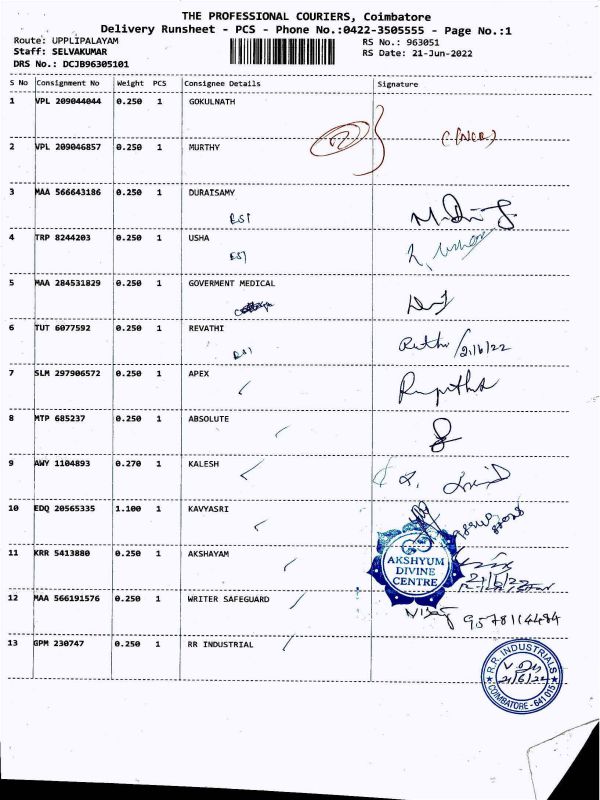 THE PROFESSIONAL COURIERS, Coimbatore
Delivery Runsheet - PCS - Phone No.:0422-3505555 - Page No.:1
Route: UPPLIPALAYAM
RS No.: 963051
Staff: SELVAKUMAR
RS Date: 21-Jun-2022
DRS No.: DCJB96305101
S No Consignment No Weight PCS Consignee Details Signature
1 VPL 209044044 0.250 1 GOKULNATH
2 VPL 209046857 0.250 1 MURTHY
3 MAA 566643186 0.250 1 DURAISAMY
ESI
4 TRP 8244203 0.250 1 USHA
ESI
5 MAA 284531829 0.250 1 GOVERMENT MEDICAL
6 TUT 6077592 0.250 1 REVATHI
ESI
21/6/22
7 SLM 297906572 0.250 1 APEX
8 MTP 685237 0.250 1 ABSOLUTE
9 AWY 1104893 0.270 1 KALESH
10 EDQ 20565335 1.100 1 KAVYASRI
11 KRR 5413880 0.250 1 AKSHAYAM
AKSHYUM
DIVINE
CENTRE
21/6/22
12 MAA 566191576 0.250 1 WRITER SAFEGUARD
9578114484
13 GPM 230747 0.250 1 RR INDUSTRIAL
R.R. INDUSTRIALS
21/6/22
COIMBATORE - 641 015